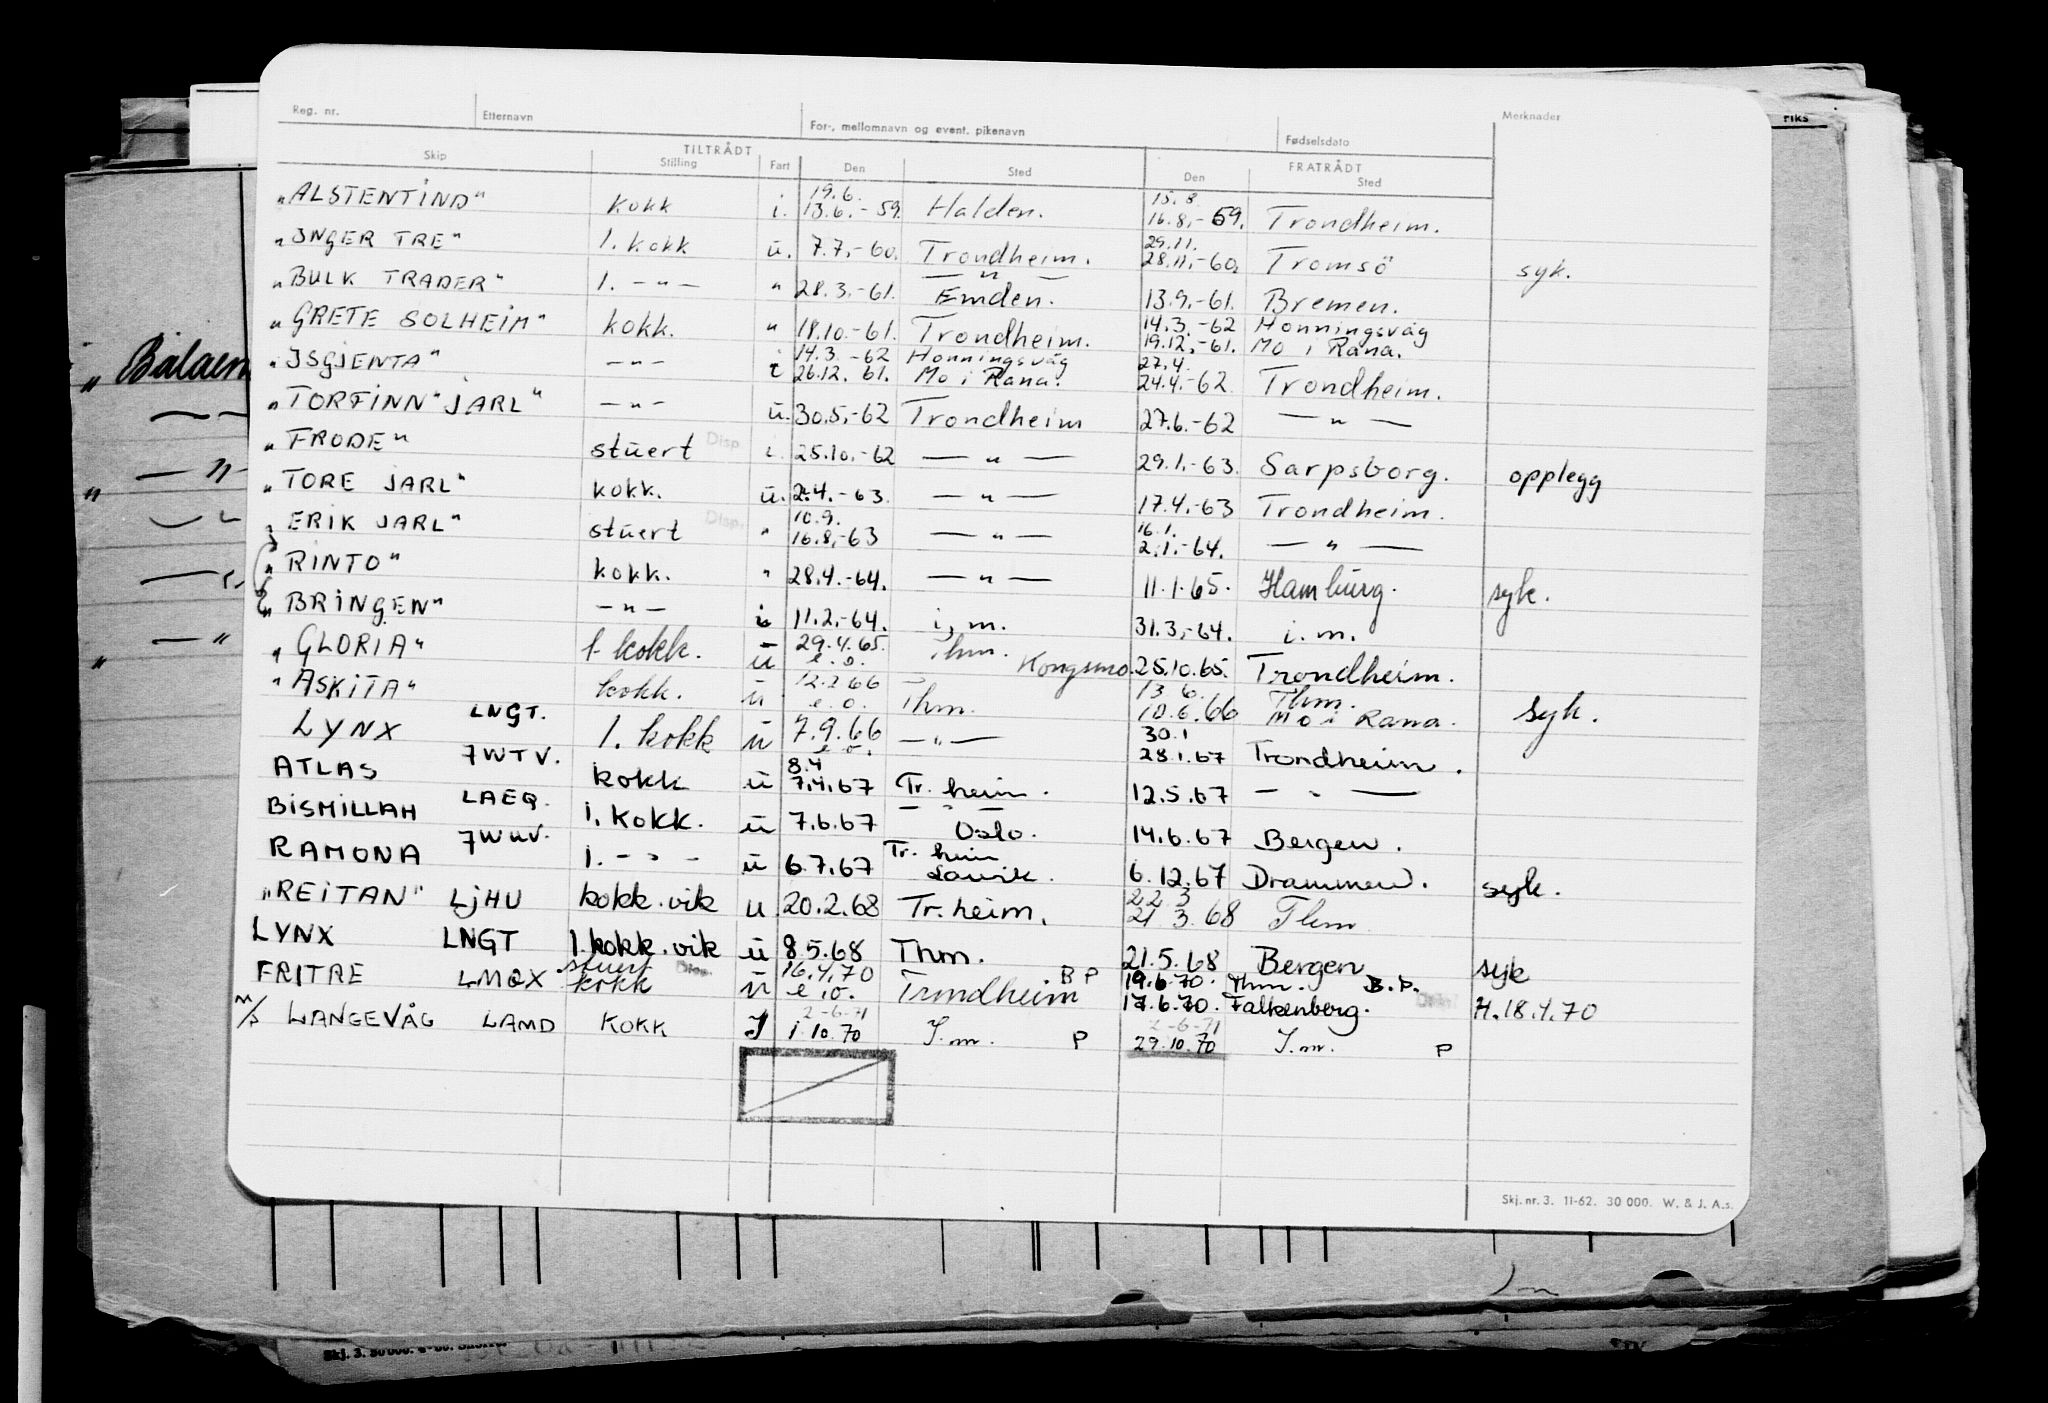 Reg. nr. Etternavn For-, mellomnavn og event. pikenavn Fødselsdato Merknader
TILTRÅDT FRATRÅDT
Skip Stilling Fart Den Sted Den Sted
19.6. 15.8.
"ALSTENTIND" kokk i. 13.6.-59. Halden. 16.8.-59. Trondheim.
29.11.
"INGER TRE" 1. kokk u. 7.7.-60. Trondheim. 28.11.-60. Tromsö syk.
— " —
"BULK TRADER" 1. - " - " 28.3.-61. Emden. 13.9.-61. Bremen.
14.3.-62 Honningsvåg
"GRETE SOLHEIM" kokk. " 18.10.-61. Trondheim. 19.12.-61. Mo i Rana.
14.3.-62 Honningsvåg 27.4.
"ISGJENTA" - " - i 26.12.61. Mo i Rana. 24.4.-62. Trondheim.
"TORFINN" JARL" - " - u. 30.5.-62 Trondheim 27.6.-62 — " —
"FRODE" stuert Disp. i. 25.10.-62 — " — 29.1.-63. Sarpsborg. opplegg
"TORE JARL" kokk. u. 2.4.-63. — " — 17.4.-63 Trondheim.
10.9. 16.1.
"ERIK JARL" stuert Disp. " 16.8.-63 — " — 2.1.-64. — " —
"RINTO" kokk. " 28.4.-64. — " — 11.1.65. Hamburg. syk.
"BRINGEN" - " - i 11.2.-64. i.m. 31.3.-64. i.m.
"GLORIA" 1 kokk. u 29.4.65. Thm. Kongsmo. 25.10.65. Trondheim.
e.o.
"ASKITA" kokk. u 12.2 66 Thm. 13 6. Thm.
e.o. 10.6.66 Mo i Rana. syk.
LYNX LNGT. 1. kokk u 7.9.66 — " — 30.1
e.o. 28.1.67 Trondheim.
8.4
ATLAS JWTV. kokk u 7.4.67 Tr. heim. 12.5.67 — " —
— " —
BISMILLAH LAEQ. 1. KOKK. u 7.6.67 Oslo. 14.6.67 Bergen.
Tr. heim
RAMONA JWUV. 1. - " - u 6.7.67 Larvik. 6.12.67 Drammen. syk.
22 3
"REITAN" LJHU kokk.vik u 20.2.68 Tr.heim. 21 3.68 Thm
LYNX LNGT 1.kokk.vik u 8.5.68 Thm. 21.5.68 Bergen syk
stuert Disp. 16.4.70 B P 19.6.70. Thm. B.P.
FRITRE LMQX kokk u e.o. Trondheim 17.6.70. Falkenberg. H.18.4.70
2-6-71 2-6-71
M/S LANGEVÅG LAMD KOKK I 1.10.70 I.m. P 29.10.70 I.m. P
Skj. nr. 3. 11-62. 30 000. W. & J. A.s.
riks